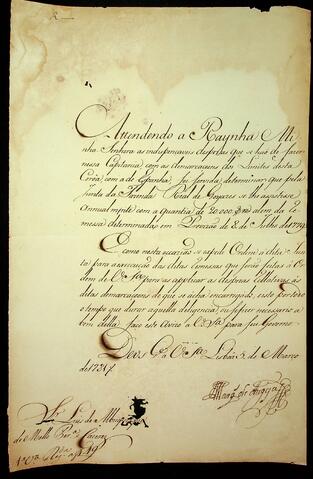 Attendendo a Raynha Mi
nha Senhora as indispensaveis despezas que se haõ de fazer
nessa Capitania, com as demarcaçoens dos Limites desta
Corôa, com a de Espanha: Foi servida determinar que pela
Junta da Fazenda Real de Goyazes se lhe assistisse
annualmente com a quantia de 20:000 alem da
messa determinada em Provizaõ de 8 de Julho de
E como nesta occaziaõ se expede Ordem á dita Jun
ta para a execuçaõ das ditas remessas que seraõ feitas á Or
dem de V. S.ª para as applicar as despezas relativas ás
ditas demarcaçoens de que se acha encarregado, isto por todo
o tempo que durar aquella deligencia, ou se fizer necessario a
bem della: faço este Avizo a V. S.ª para seu Governo
Deos G.e a V. S.ª Lisboa de Março
de
Snr. Luis de Albuq
de Mello Per.ª Caceres